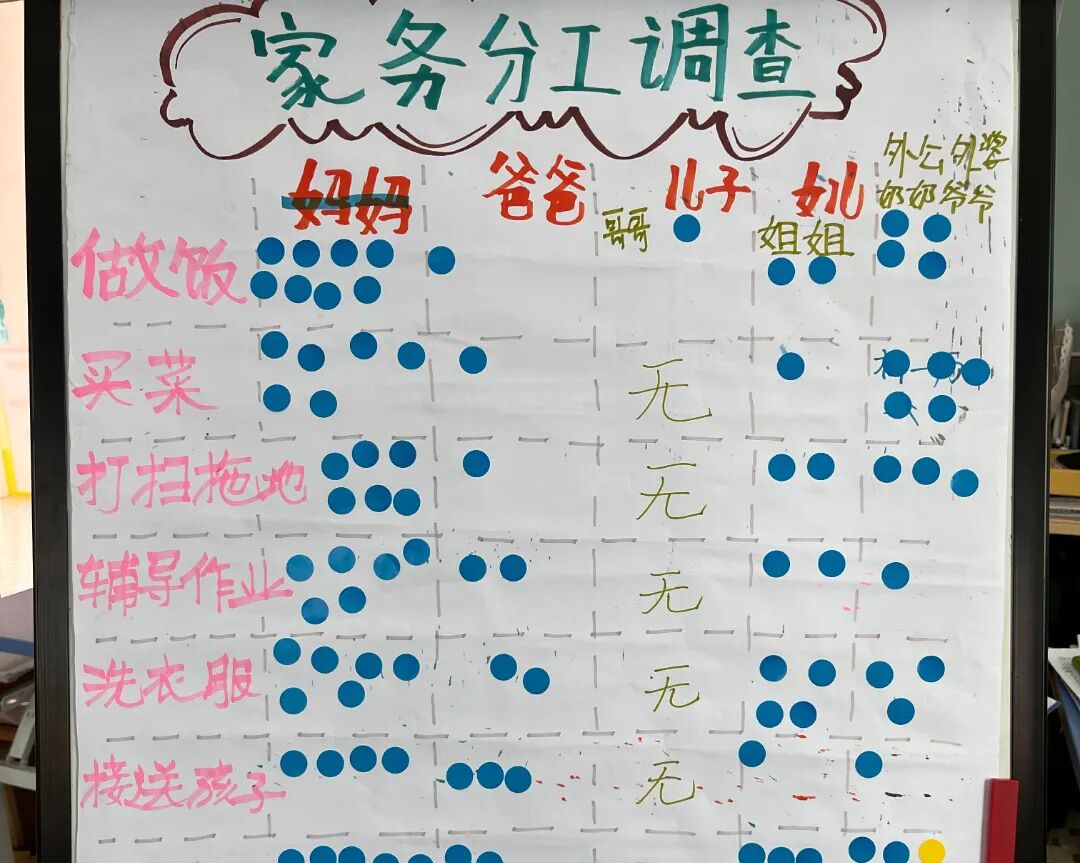 家务分工调查
妈妈 爸爸 儿子 女儿 外公外婆
哥哥 姐姐 奶奶爷爷
做饭
买菜 无
打扫拖地 无
辅导作业 无
洗衣服 无
接送孩子 无